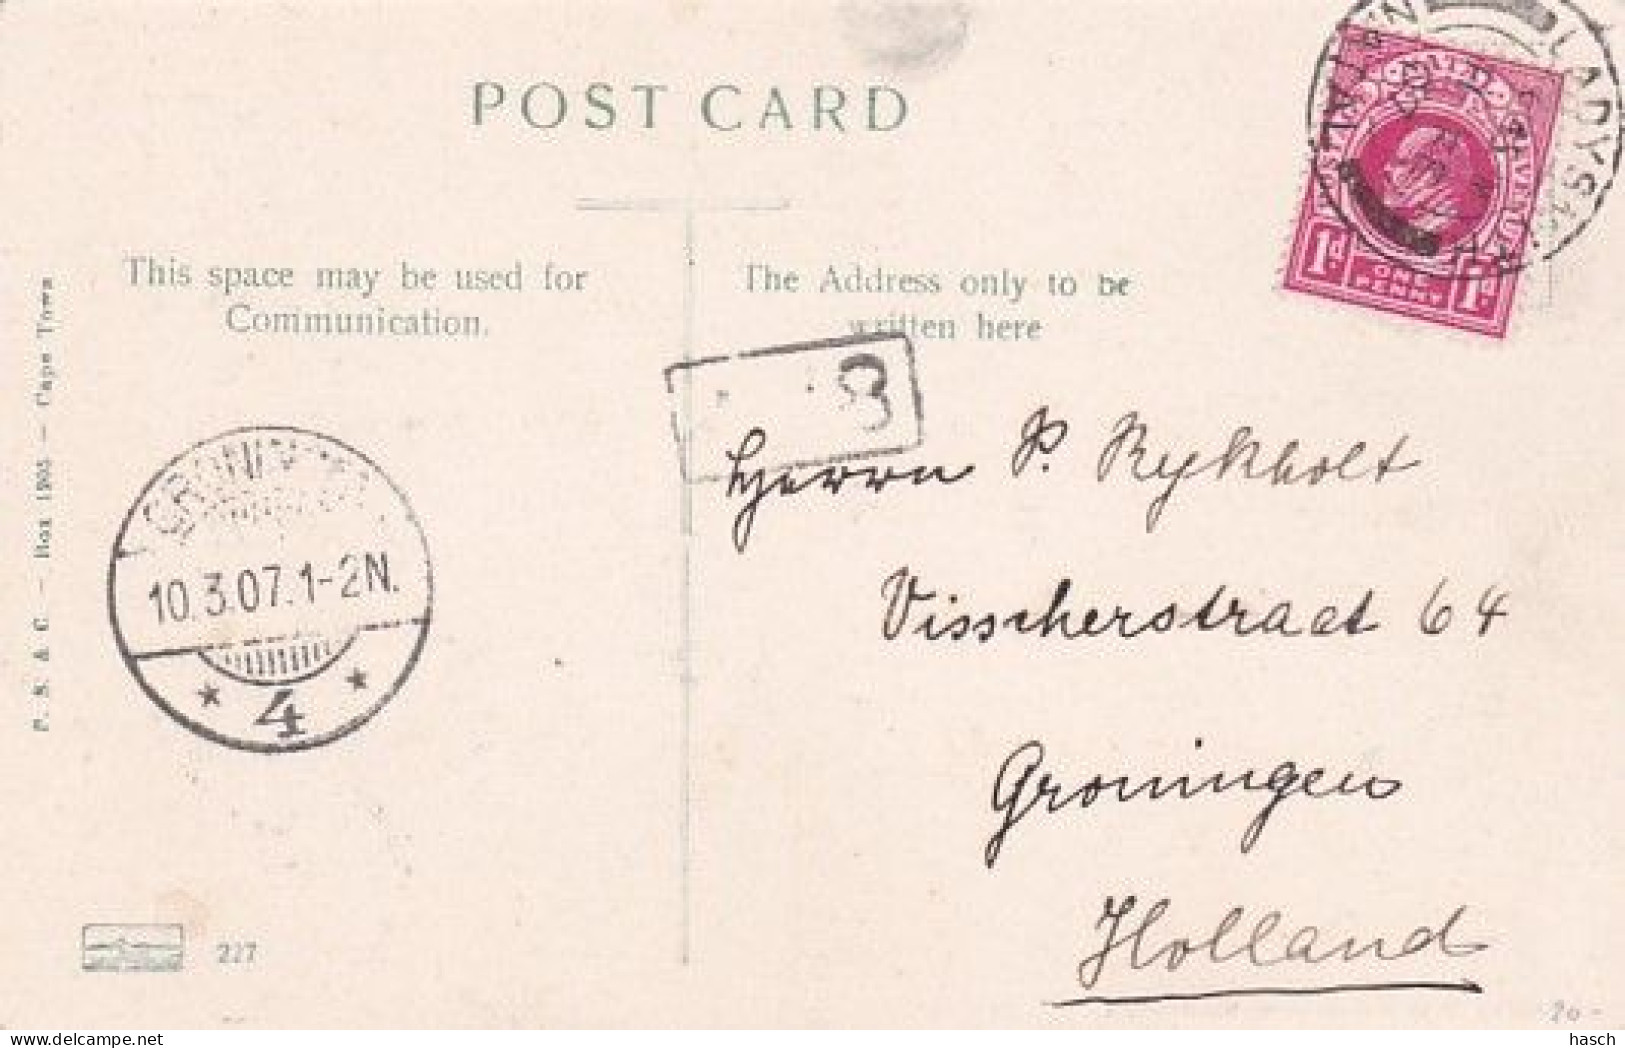 POST CARD
This space may be used for
Communication.
The Address only to be
written here
LADYSMITH
NATAL
POSTAGE REVENUE
1d ONE PENNY 1d
8
Herrn P. Rykholt
Visscherstraat 64
Groningen
Holland
GRONINGEN
10.3.07.1-2N.
* 4 *
P. S. & C. - Box - Cape Town
227
20-
hasch